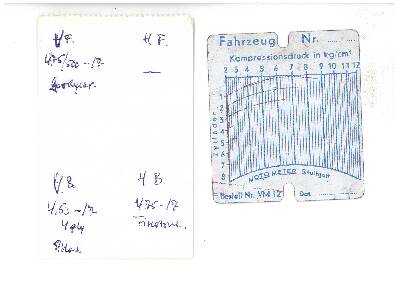 V F.
H F.
4.75/500-17
—
Goodyear.
V B.
H B.
4.50-17
4.75-17
4 ply
Firestone.
Fahrzeug Nr.
Kompressionsdruck in kg/cm²
2 3 4 5 6 7 8 9 10 11 12
Zylinder
1
2
3
4
5
6
7
8
MOTO METER Stuttgart
Bestell Nr. VM 12
Dat.